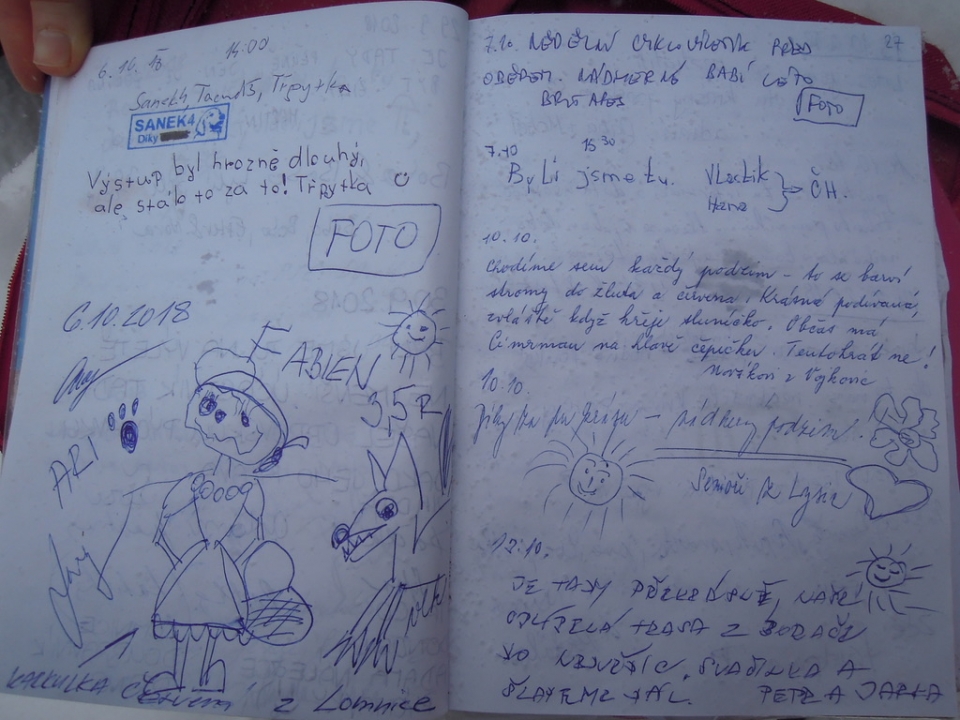 6.10.18 14:00
Sanek4, Tacudš, Třpytka
SANEK4
Díky
Výstup byl hrozně dlouhý,
ale stálo to za to! Třpytka
FOTO
6.10.2018
FABIEN
3,5 R
ARI
vlk
KARKULKA Červená z Lomnice
27
7.10. NEDĚLNÍ PŘED
OBĚDEM. NÁDHERNÉ BABÍ LÉTO
FOTO
7.10 15 30
Byli jsme tu. Vlastik
Hana
ČH.
10.10.
Chodíme sem každý podzim - to se barví
stromy do žluta a červena. Krásná podívaná,
zvláště když hřeje sluníčko. Občas má
Cimrman na hlavě čepičku. Tentokrát ne!
10.10.
Díky za krásu - nádherný podzim.
Senioři z Lysic
12.10.
JE TADY PŘEKRÁSNĚ, NAŠE
TRASA Z
DO SVAČINKA A
ŠLAPEME DÁL. PETR A JARKA